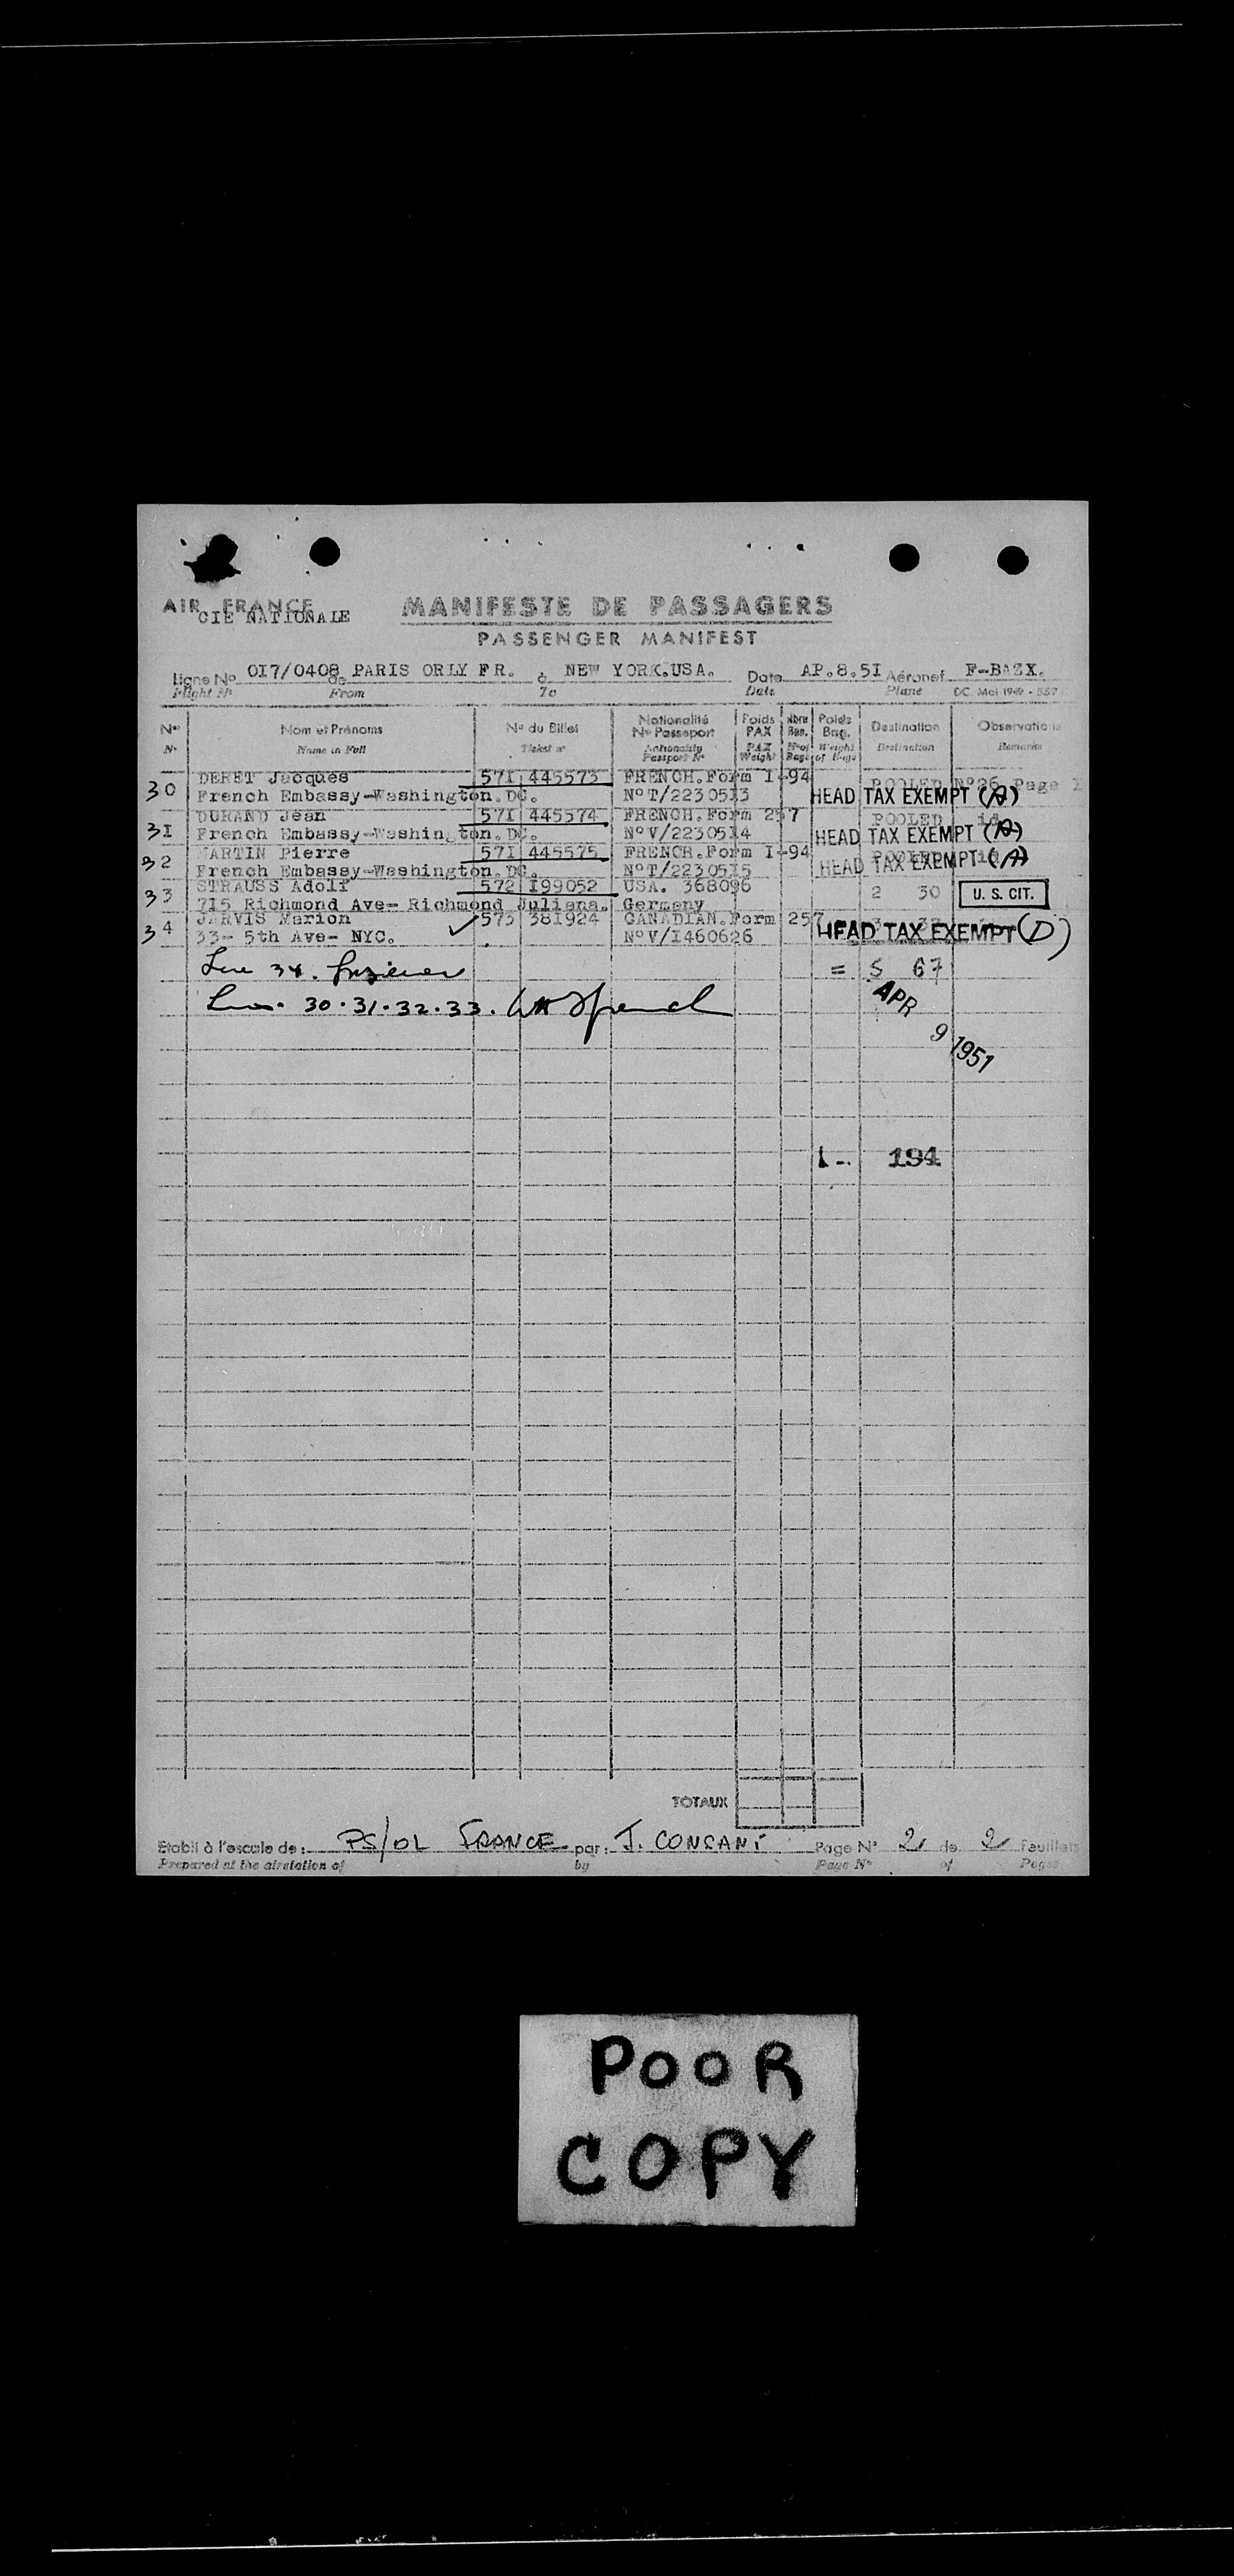 AIR FRANCE
CIE NATIONALE
MANIFESTE DE PASSAGERS
PASSENGER MANIFEST
Ligne No 017/0408 de PARIS ORLY FR. à NEW YORK.USA. Date AP.8.5I Aéronef F-BAZX.
Flight No From To Date Plane DC. Mai 1949 - 557
Nos Nom et Prénoms No du Billet Nationalité No Passeport Poids PAX Nbre Bag. Poids Bag. Destination Observations
No Name in Full Ticket no Nationality Passport No PAX Weight No of Bags Weight of Bags Destination Remarks
30 DERET Jacques 57I 445573 FRENCH.Form I-94 POOLED N°26 Page I
French Embassy-Washington.DC. N°T/2230513 HEAD TAX EXEMPT (A)
3I DURAND Jean 57I 445574 FRENCH.Form 257 POOLED id
French Embassy-Washington.DC. N°V/2230514 HEAD TAX EXEMPT (A)
32 MARTIN Pierre 57I 445575 FRENCH.Form I-94 POOLED id
French Embassy-Washington.DC. N°T/2230515 HEAD TAX EXEMPT (A)
33 STRAUSS Adolf 572 I99052 USA. 368096 2 30 U. S. CIT.
715 Richmond Ave- Richmond Juliana. Germany
34 JARVIS Marion ✓ 573 381924 CANADIAN.Form 257 3 37
33- 5th Ave- NYC. N°V/I460626 HEAD TAX EXEMPT (D)
Line 34. = 5 67
30.31.32.33. APR 9 1951
194
TOTAUX
Etabli à l'escale de : PS/OL FRANCE par : J. CONSANI Page No 2 de 2 Feuillets
Prepared at the airstation of by Page No of Pages
POOR
COPY